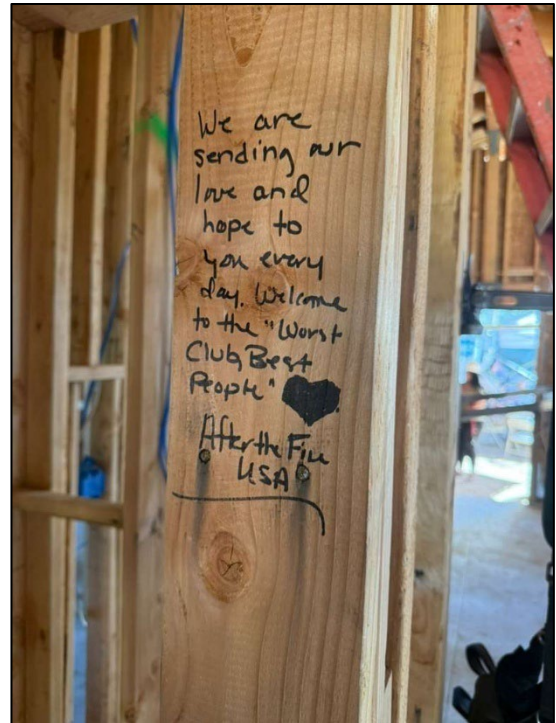 We are
sending our
love and
hope to
you every
day. Welcome
to the "Worst
Club, Best
People"
After the Fire
USA